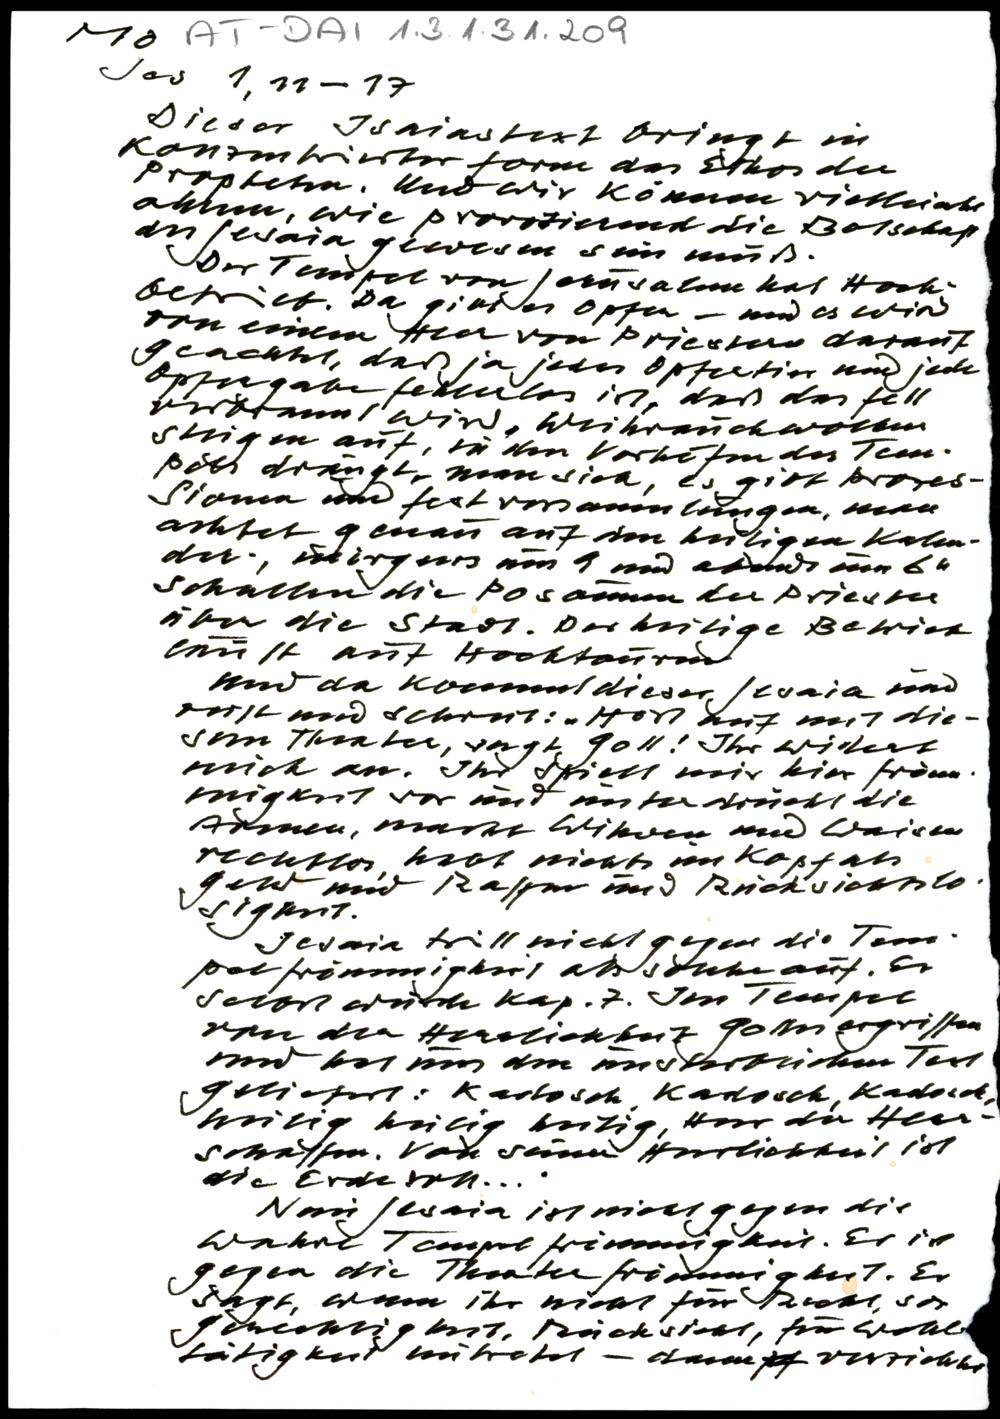 Mo AT-DAI 1.3.1.31.209
Jes 1, 11-17
Dieser Isaiastext bringt in
konzentrierter Form das Ethos der
Propheten. Und wir können vielleicht
ahnen, wie provozierend die Botschaft
des Jesaia gewesen sein muß.
Der Tempel von Jerusalem hat Hoch-
betrieb. Da gibt es Opfer - und es wird
von einem Heer von Priestern darauf
geachtet, daß ja jedes Opfertier und jede
Opfergabe fehlerlos ist, daß das Fell
verbrannt wird, Weihrauchwolken
steigen auf, in den Vorhöfen des Tem-
pels drängt man sich, es gibt Prozes-
sionen und Festversammlungen, man
achtet genau auf den heiligen Kalen-
der, morgens um 9 und abends um 6
schallen die Posaunen der Priester
über die Stadt. Der heilige Betrieb
läuft auf Hochtouren
Und da kommt dieser Jesaia und
ruft und schreit: „Hört auf mit die-
sem Theater, sagt Gott! Ihr widert
mich an. Ihr spielt mir hier Fröm-
migkeit vor und unterdrückt die
Armen, macht Witwen und Waisen
rechtlos, habt nichts im Kopf als
Geld und Raffen und Rücksichtslo-
sigkeit.
Jesaia tritt nicht gegen die Tem-
pelfrömmigkeit als solche auf. Er
selbst wurde Kap. 7. Im Tempel
von der Herrlichkeit Gottes ergriffen
und hat uns den unsterblichen Text
geliefert: Kadosch, Kadosch, Kadosch,
heilig heilig heilig, Herr der Heer-
schaffen. Von seiner Herrlichkeit ist
die Erde voll...
Nein Jesaia ist nicht gegen die
wahre Tempelfrömmigkeit. Er ist
gegen die Theaterfrömmigkeit. Er
sagt, wenn ihr nicht für Recht,
Gerechtigkeit, Rücksicht, für Wohl-
tätigkeit eintretet - dann verzichte